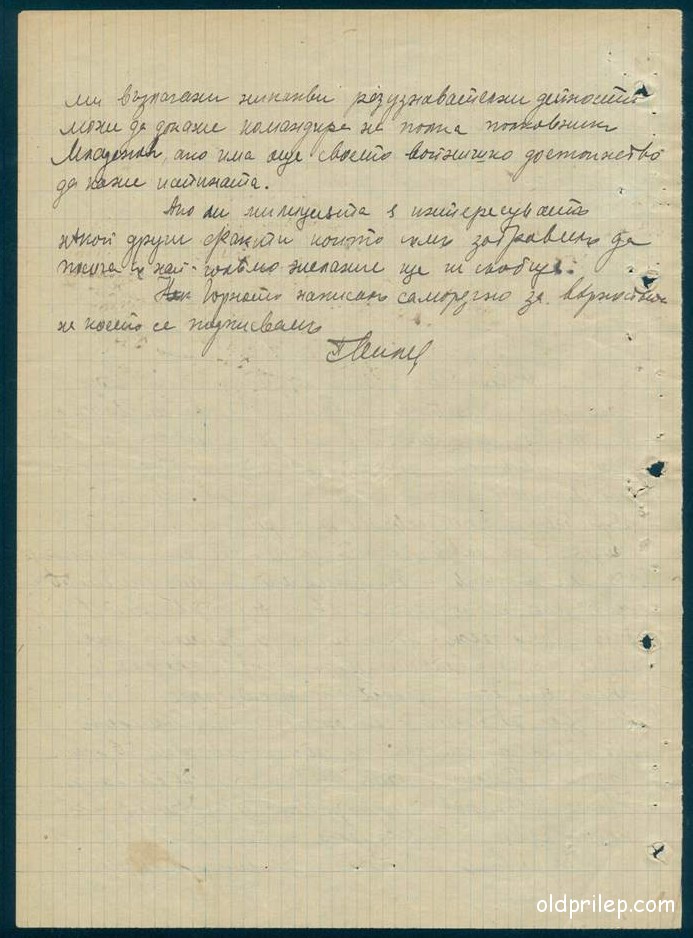 ми възлагани никакви разузнавателни дейности
може да докаже командира на полка полковник
Младенов, ако има още своето войнишко достойнство
да каже истината.
Ако ли милицията я интересуват
някой други факти които съм забравилъ да
посоча с най-голямо желание ще ги съобщя.
Горното написах саморъчно за верността
на което се подписвамъ
oldprilep.com